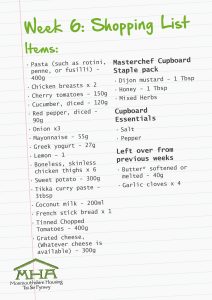 Week 6: Shopping List
Items:
· Pasta (such as rotini,
penne, or fusilli) -
400g
· Chicken breasts x 2
· Cherry tomatoes - 150g
· Cucumber, diced - 120g
· Red pepper, diced -
90g
· Onion x3
· Mayonnaise - 55g
· Greek yogurt - 27g
· Lemon - 1
· Boneless, skinless
chicken thighs x 6
· Sweet potato - 300g
· Tikka curry paste -
3tbsp
· Coconut milk - 200ml
· French stick bread x 1
· Tinned Chopped
Tomatoes - 400g
· Grated cheese,
(Whatever cheese is
available) - 300g
Masterchef Cupboard
Staple pack
· Dijon mustard - 1 Tbsp
· Honey - 1 Tbsp
· Mixed Herbs
Cupboard
Essentials
· Salt
· Pepper
Left over from
previous weeks
· Butter* softened or
melted - 40g
· Garlic cloves x 4
MHA
Monmouthshire Housing
Tai Sir Fynwy